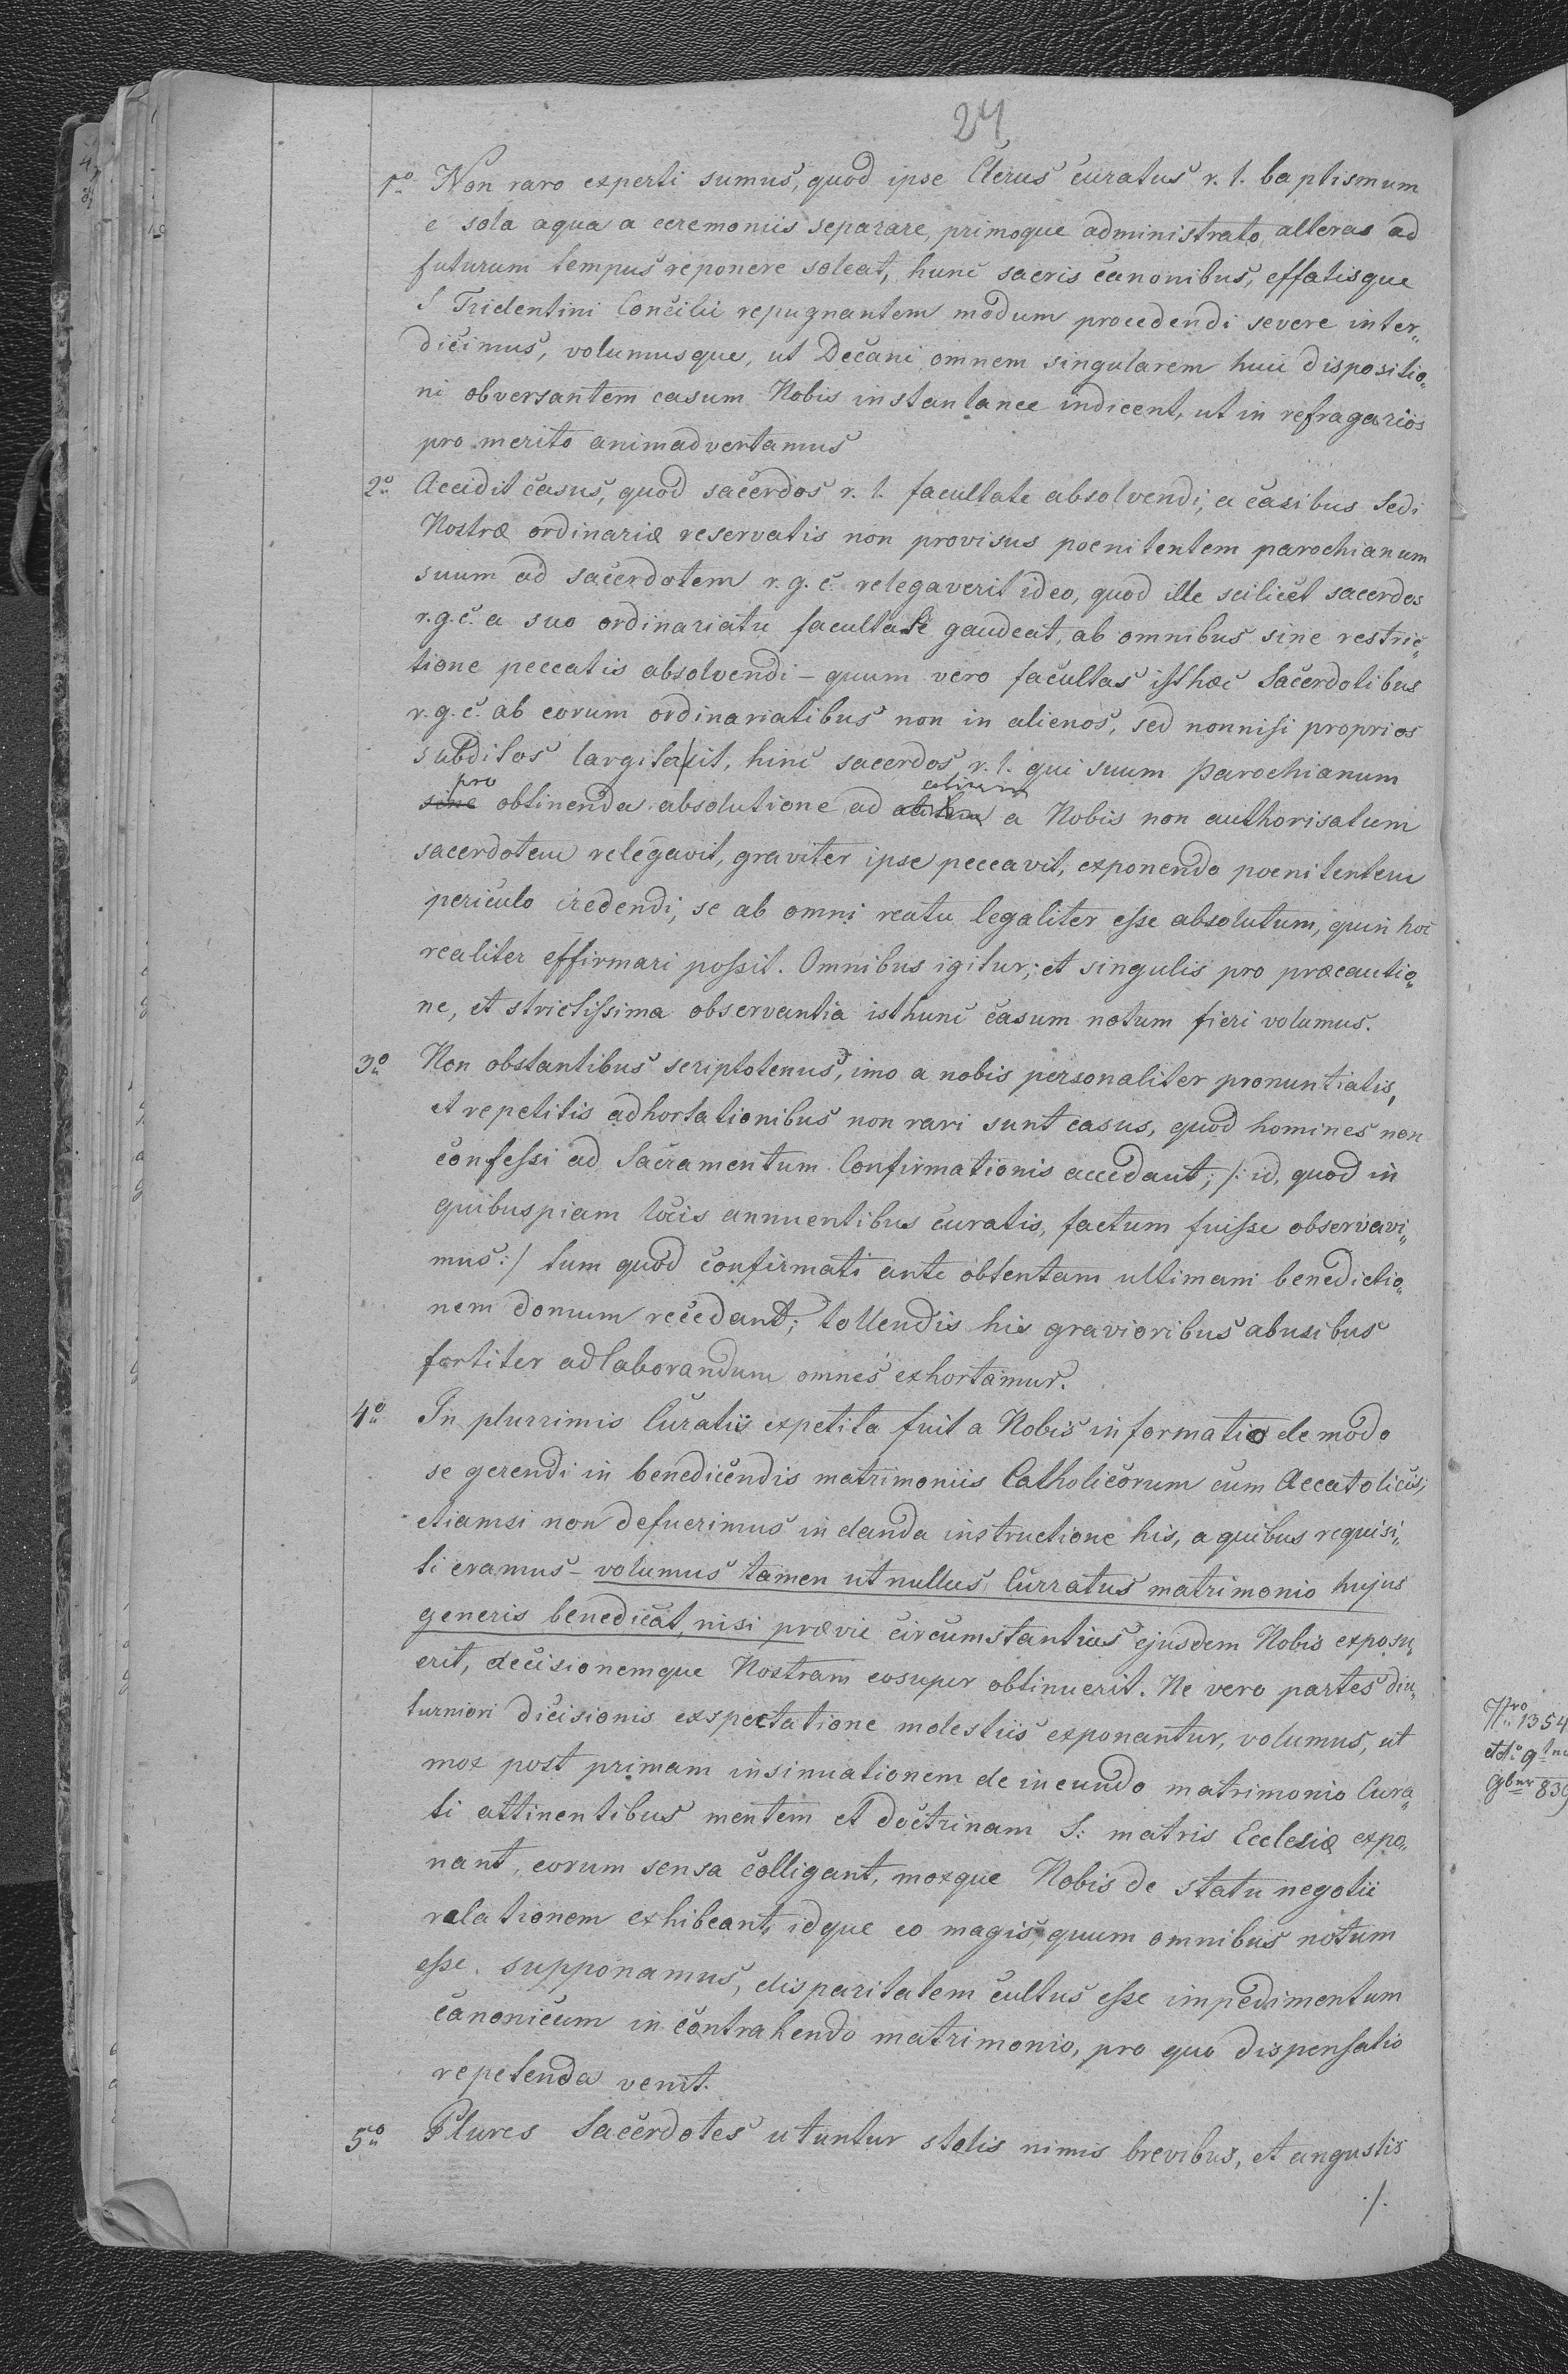 24
1o Non raro experti sumus, quod ipse Clerus curatus r. l. baptismum
e sola aqua a ceremoniis separare, primoque administrato, alteras ad
futurum tempus reponere soleat, hunc sacris canonibus, effatisque
S Tridentini Concilii repugnantem modum procedendi severe inter„
dicimus, volumusque, ut Decani omnem singularem huic dispositio„
ni obversantem casum Nobis instantanee indicent, ut in refragarios
pro merito animadvertamus
2o Accidit casus, quod sacerdos r. l. facultate absolvendi, a casibus Sedi
Nostræ ordinariæ reservatis non provisus poenitentem parochianum
suum ad sacerdotem r. g. c. relegaverit ideo, quod ille scilicet sacerdos
r. g. c. a suo ordinariatu facultate gaudeat, ab omnibus sine restric„
tione peccatis absolvendi – quum vero facultas isthæc Sacerdotibus
r. g. c. ab eorum ordinariatibus non in alienos, sed nonnisi proprios
subditos largita sit, hinc sacerdos r. l. qui suum parochianum
pro obtinenda absolutione ad alium a Nobis non authorisatum
sacerdotem relegavit, graviter ipse peccavit, exponendo poenitentem
periculo credendi, se ab omni reatu legaliter esse absolutum, quin hoc
realiter effirmari possit. Omnibus igitur, et singulis pro præcautio„
ne, et strictissima observantia isthunc casum notum fieri volumus.
3o Non obstantibus scriptotenus, imo a nobis personaliter pronuntiatis,
et repetitis adhortationibus non rari sunt casus, quod homines non
confessi ad Sacramentum Confirmationis accedant; /: id, quod in
quibuspiam locis annuentibus curatis, factum fuisse observavi„
mus :/ tum quod confirmati ante obtentam ultimam benedictio„
nem domum recedant; tollendis his gravioribus abusibus
fortiter adlaborandum omnes exhortamur.
4o In plurrimis Curatiis expetita fuit a Nobis informatio de modo
se gerendi in benedicendis matrimoniis Catholicorum cum Accatolicis,
etiamsi non defuerimus in danda instructione his, a quibus requisi„
ti eramus – volumus tamen ut nullus Curratus matrimonio hujus
generis benedicat, nisi prævie circumstantias ejusdem Nobis exposu„
erit, decisionemque Nostram eosuper obtinuerit. Ne vero partes diu„
turniori dicisionis exspectatione molestiis exponantur, volumus, ut
mox post primam insinuationem de ineundo matrimonio Cura„
ti attinentibus mentem et doctrinam S: matris Ecclesiæ expo„
nant, eorum sensa colligant, moxque Nobis de statu negotii
relationem exhibeant, idque eo magis, quum omnibus notum
esse supponamus, disparitatem cultus esse impedimentum
canonicum in contrahendo matrimonio, pro quo dispensatio
repetenda venit.
5o Plures Sacerdotes utuntur stolis nimis brevibus, et angustis
./.
1354
839